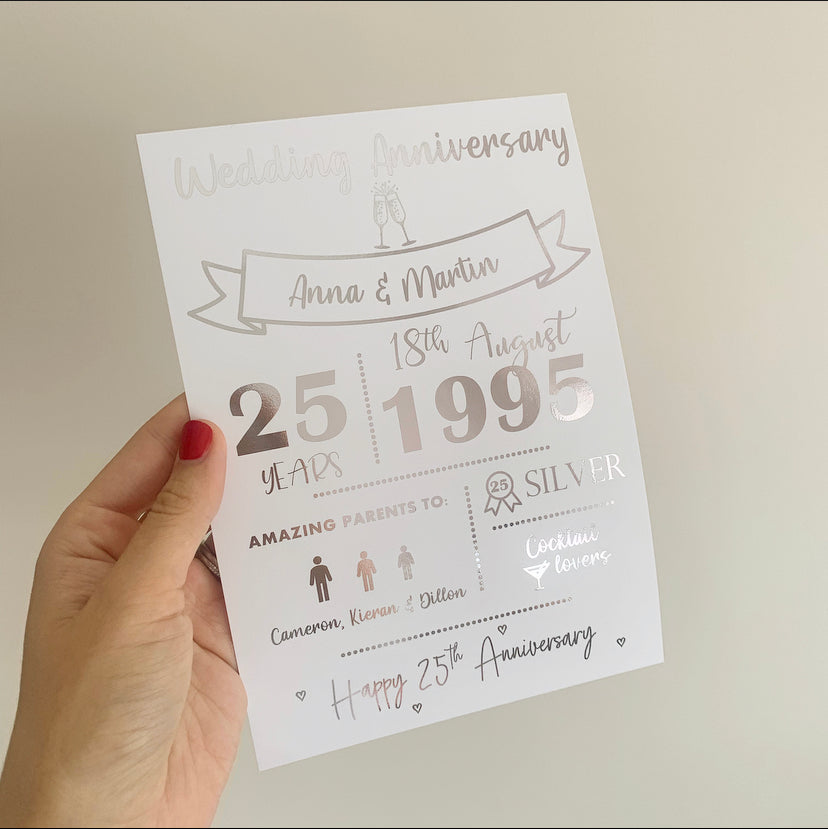 Wedding Anniversary
Anna & Martin
25
YEARS
18th August
1995
AMAZING PARENTS TO:
Cameron, Kieran & Dillon
25 SILVER
Cocktail
lovers
Happy 25th Anniversary